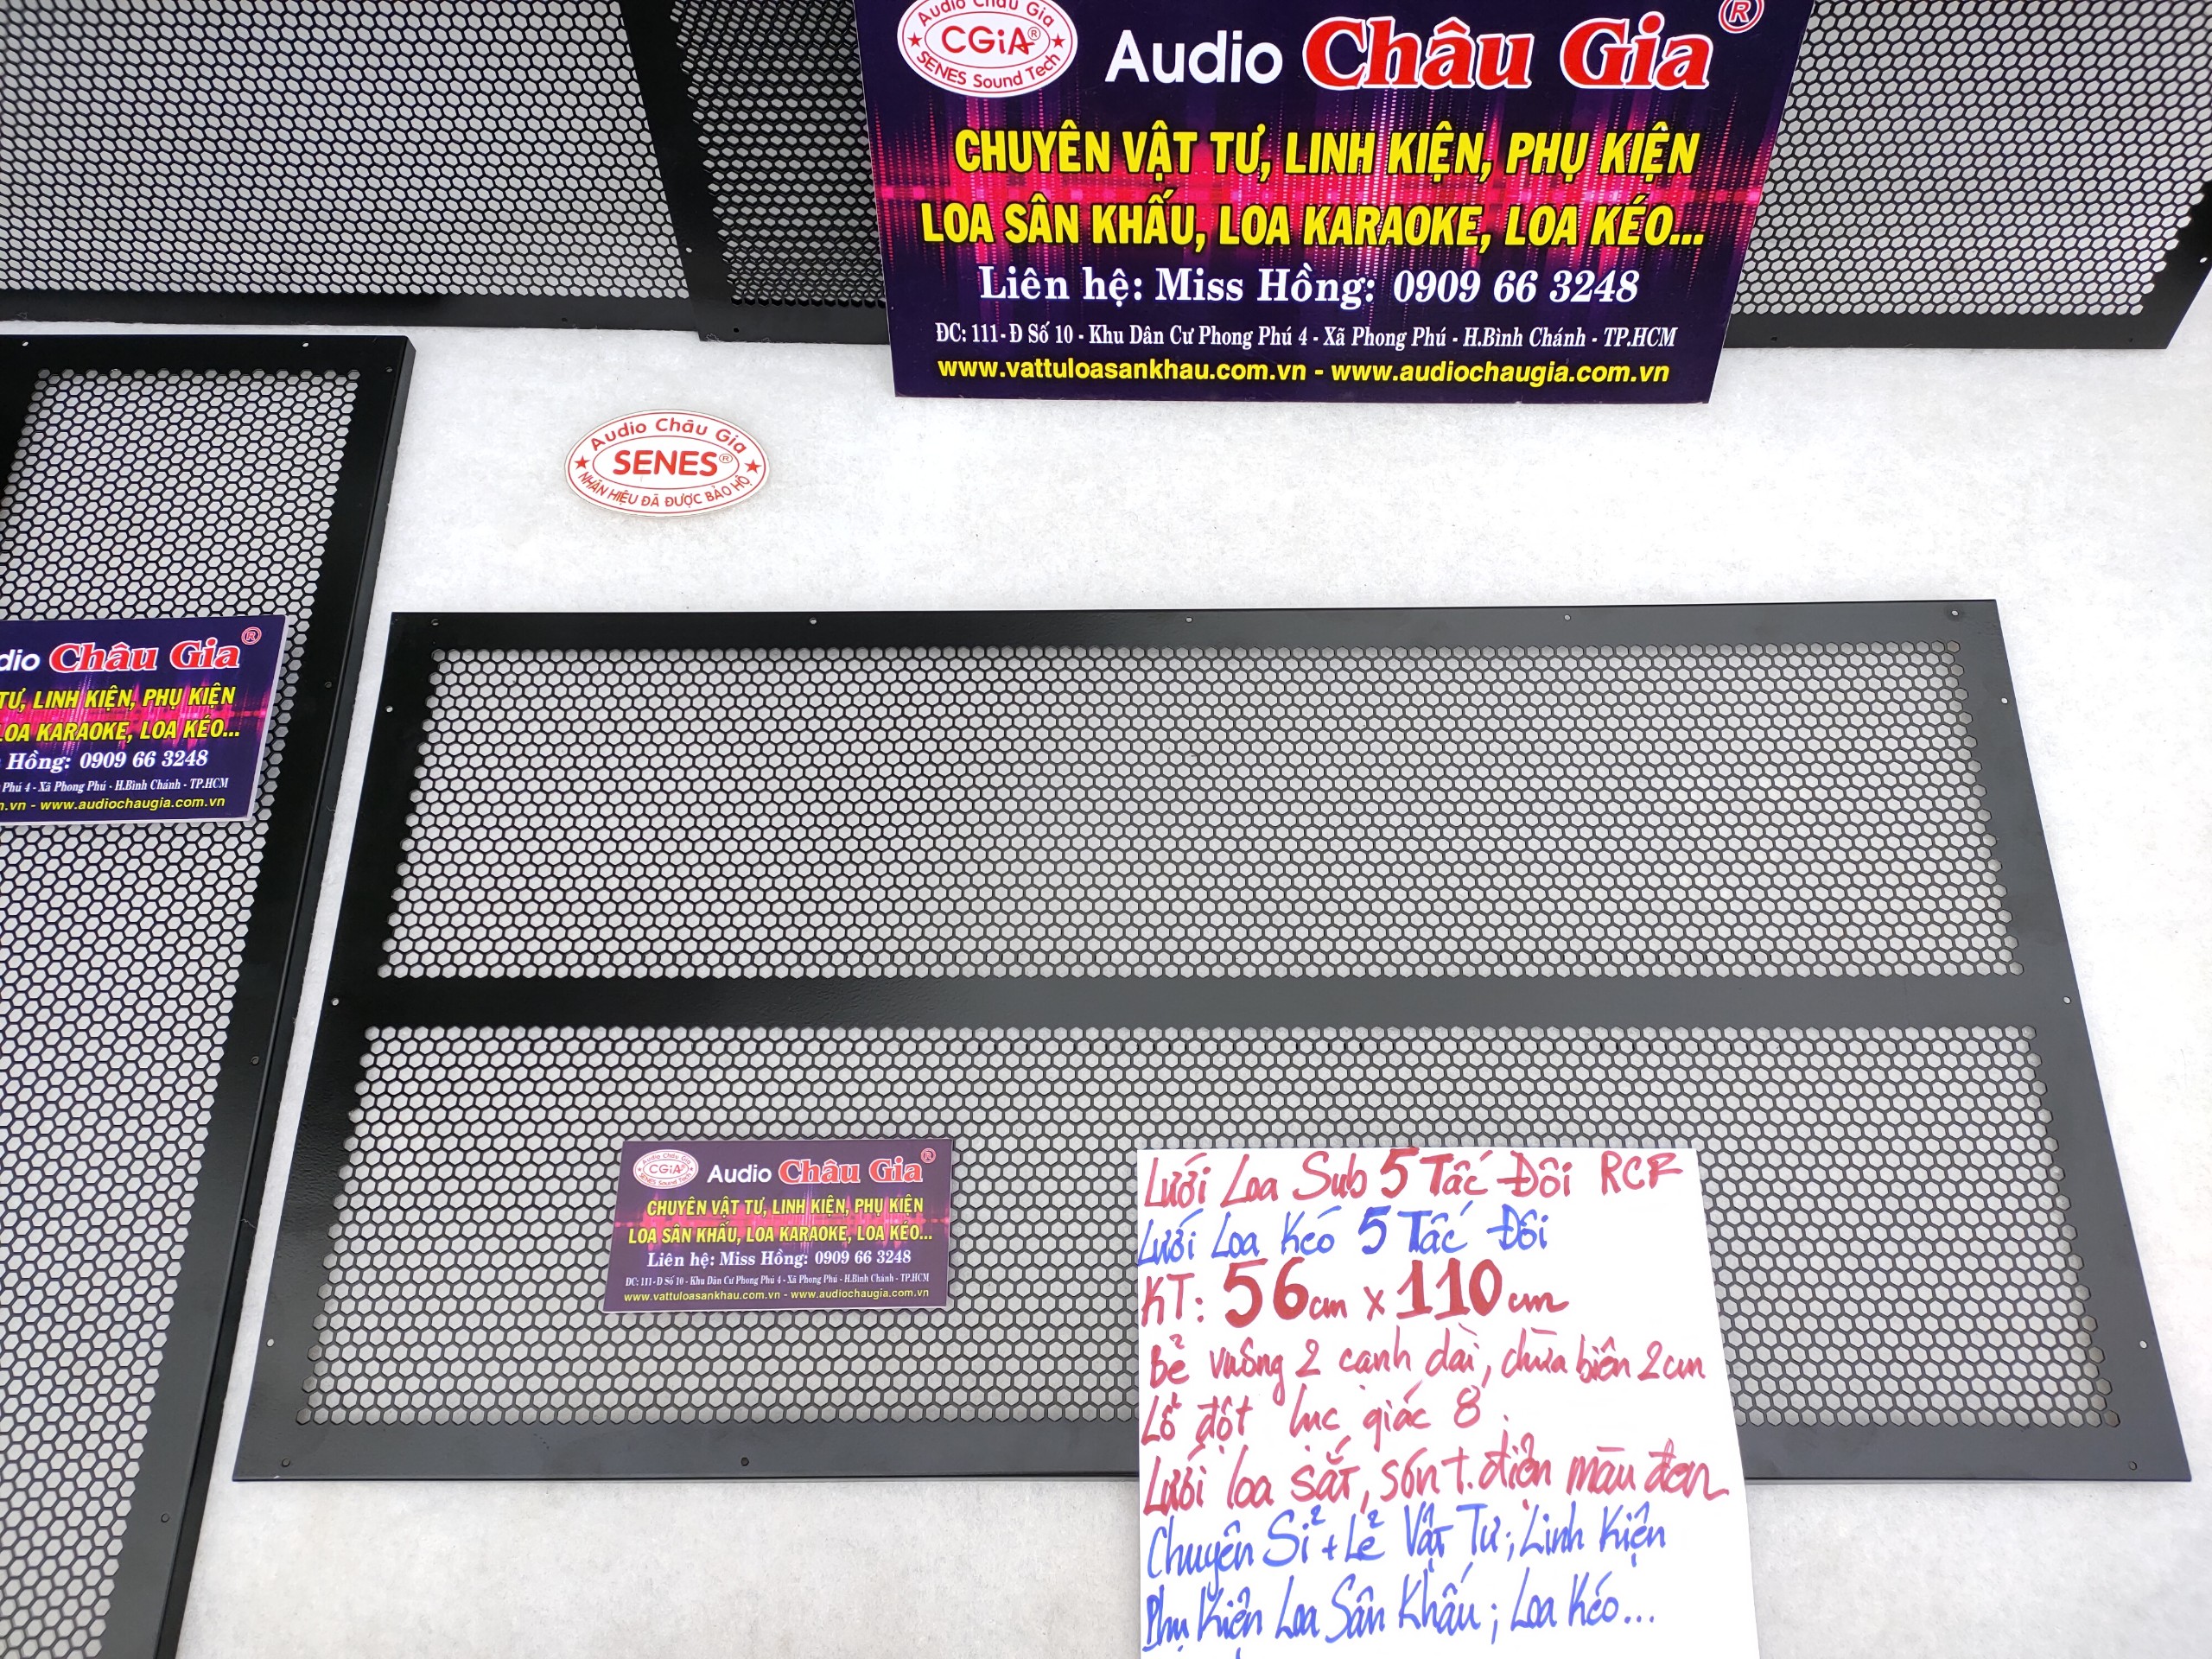 Audio Châu Gia
CGiA®
SENES Sound Tech
Audio Châu Gia ®
CHUYÊN VẬT TƯ, LINH KIỆN, PHỤ KIỆN
LOA SÂN KHẤU, LOA KARAOKE, LOA KÉO...
Liên hệ: Miss Hồng: 0909 66 3248
ĐC: 111- Đ Số 10 - Khu Dân Cư Phong Phú 4 - Xã Phong Phú - H.Bình Chánh - TP.HCM
www.vattuloasankhau.com.vn - www.audiochaugia.com.vn
Audio Châu Gia
SENES®
NHÃN HIỆU ĐÃ ĐƯỢC BẢO HỘ
dio Châu Gia ®
TƯ, LINH KIỆN, PHỤ KIỆN
LOA KARAOKE, LOA KÉO...
Hồng: 0909 66 3248
Phú 4 - Xã Phong Phú - H.Bình Chánh - TP.HCM
.vn - www.audiochaugia.com.vn
Audio Châu Gia
CGiA®
SENES Sound Tech
Audio Châu Gia ®
CHUYÊN VẬT TƯ, LINH KIỆN, PHỤ KIỆN
LOA SÂN KHẤU, LOA KARAOKE, LOA KÉO...
Liên hệ: Miss Hồng: 0909 66 3248
ĐC: 111- Đ Số 10 - Khu Dân Cư Phong Phú 4 - Xã Phong Phú - H.Bình Chánh - TP.HCM
www.vattuloasankhau.com.vn - www.audiochaugia.com.vn
Lưới Loa Sub 5 Tấc Đôi RCF
Lưới Loa Kéo 5 Tấc Đôi
KT: 56cm x 110cm
Bẻ vuông 2 cạnh dài, chừa biên 2cm
Lỗ đột lục giác 8.
Lưới loa sắt, sơn t.điện màu đen
Chuyên Sỉ + Lẻ Vật Tư; Linh Kiện
Phụ Kiện Loa Sân Khấu; Loa Kéo...